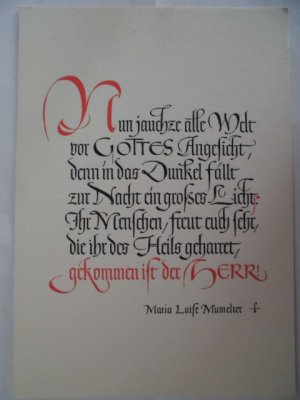 Nun jauchze alle Welt
vor GOTTES Angesicht,
denn in das Dunkel fällt
zur Nacht ein großes Licht:
Ihr Menschen, freut euch sehr,
die ihr des Heils geharret,
gekommen ist der HERR!
Maria Luise Mumelter